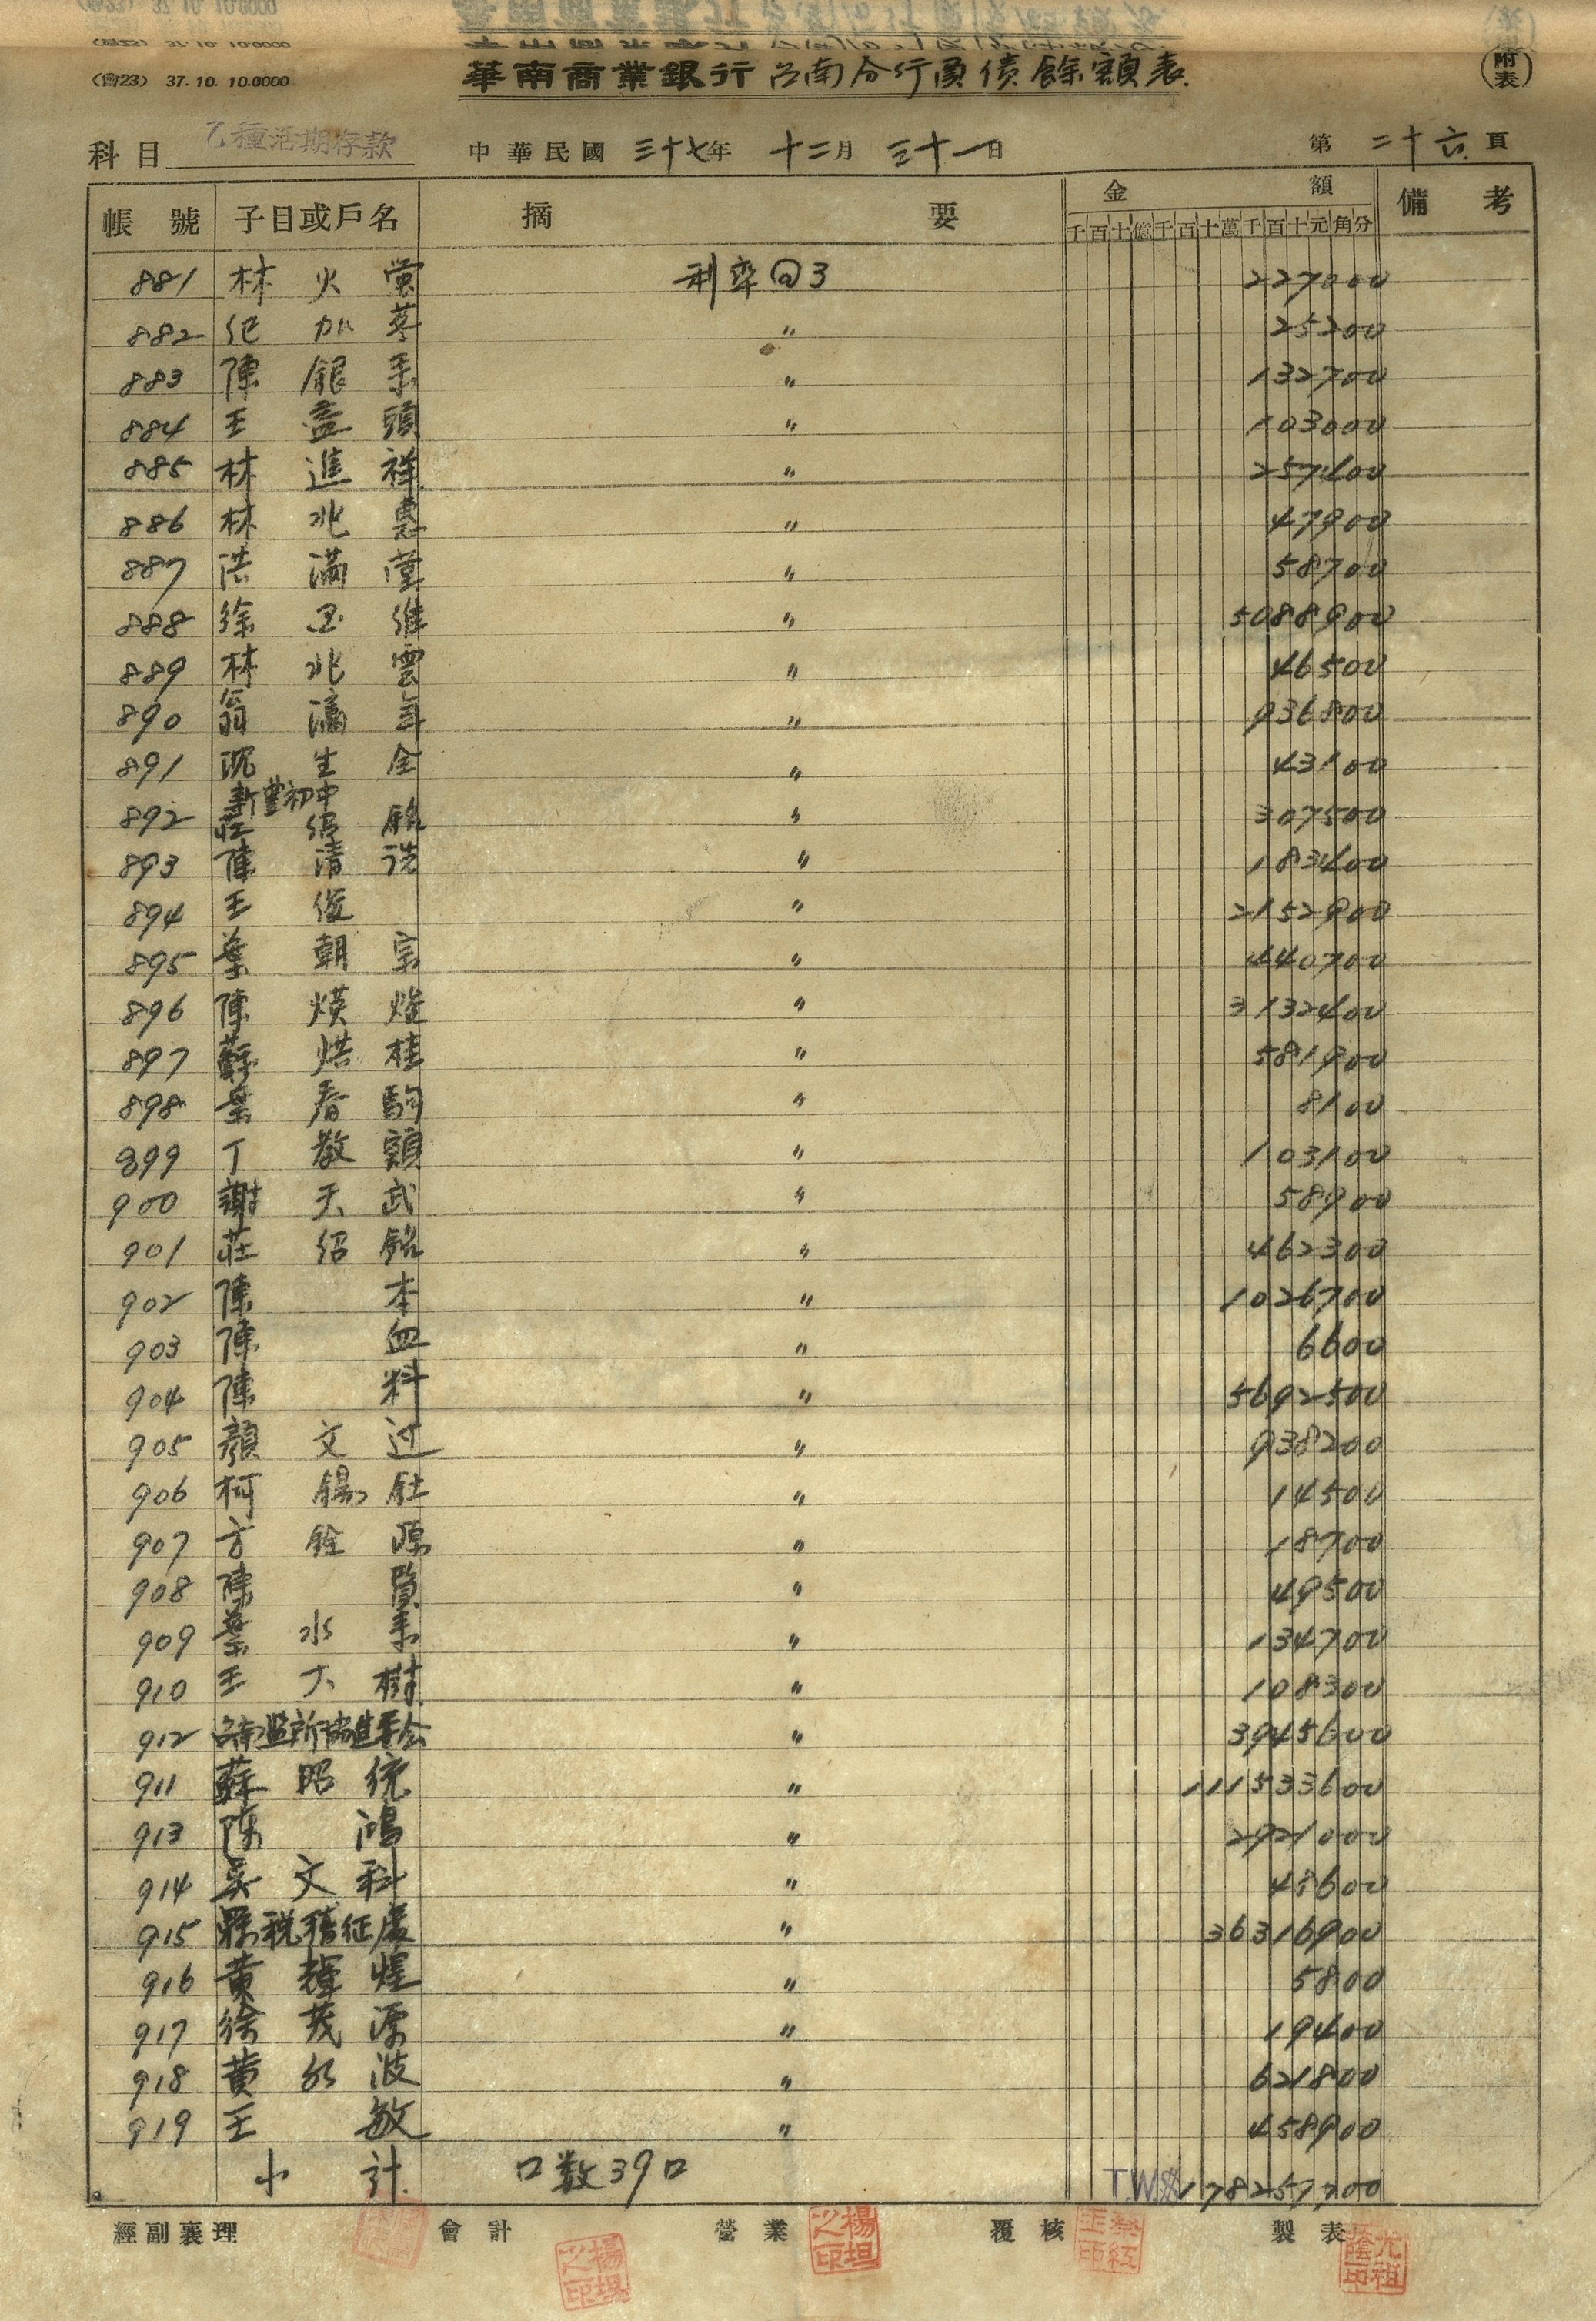 (會23) 37.10.10.0000
華南商業銀行台南分行負債餘額表
(附表)
科目 乙種活期存款 中華民國三十七年十二月三十一日 第二十六頁
帳號 子目或戶名 摘要 金額 備考
千百十億千百十萬千百十元角分
881 林火螢 利率@3 227000
882 紀加苳 〃 25200
883 陳銀 〃 132700
884 王益頭 〃 103000
885 林進祥 〃 257400
886 林兆惠 〃 47900
887 洪滿堂 〃 58700
888 徐玉維 〃 5088900
889 林兆雲 〃 46500
890 翁瀛年 〃 936800
891 沈生全 〃 43100
892 新豐初中莊紹銘 〃 307500
893 陳清 〃 183400
894 王俊 〃 2152900
895 葉朝宗 〃 440700
896 陳煌 〃 3132400
897 蘇桂 〃 581900
898 葉春駒 〃 8100
899 丁教 〃 103100
900 謝天武 〃 58900
901 莊紹銘 〃 462300
902 陳本 〃 1026700
903 陳 〃 6600
904 陳料 〃 5692500
905 顏文过 〃 938200
906 柯錫 〃 14500
907 方銓源 〃 18700
908 陳賢 〃 49500
909 葉水 〃 134700
910 王大樹 〃 108300
912 台南監所協進委会 〃 3945600
911 蘇昭統 〃 111533600
913 陈鴻 〃 2921000
914 吳文科 〃 48600
915 縣税稽征處 〃 36316900
916 黄輝煌 〃 5800
917 徐茂源 〃 19400
918 黄波 〃 621800
919 王敏 〃 458900
小計 口数39口 T.W.$178257700
經副襄理 會計 營業 覆核 製表
楊坦之印
楊坦之印